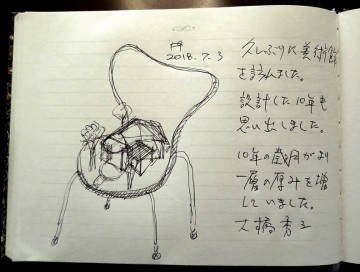 2018.7.3
久しぶりに美術館
を訪れました。
設計した10年も
思い出しました。
10年の歳月がより
一層の厚みを増
していました。
大橋秀三